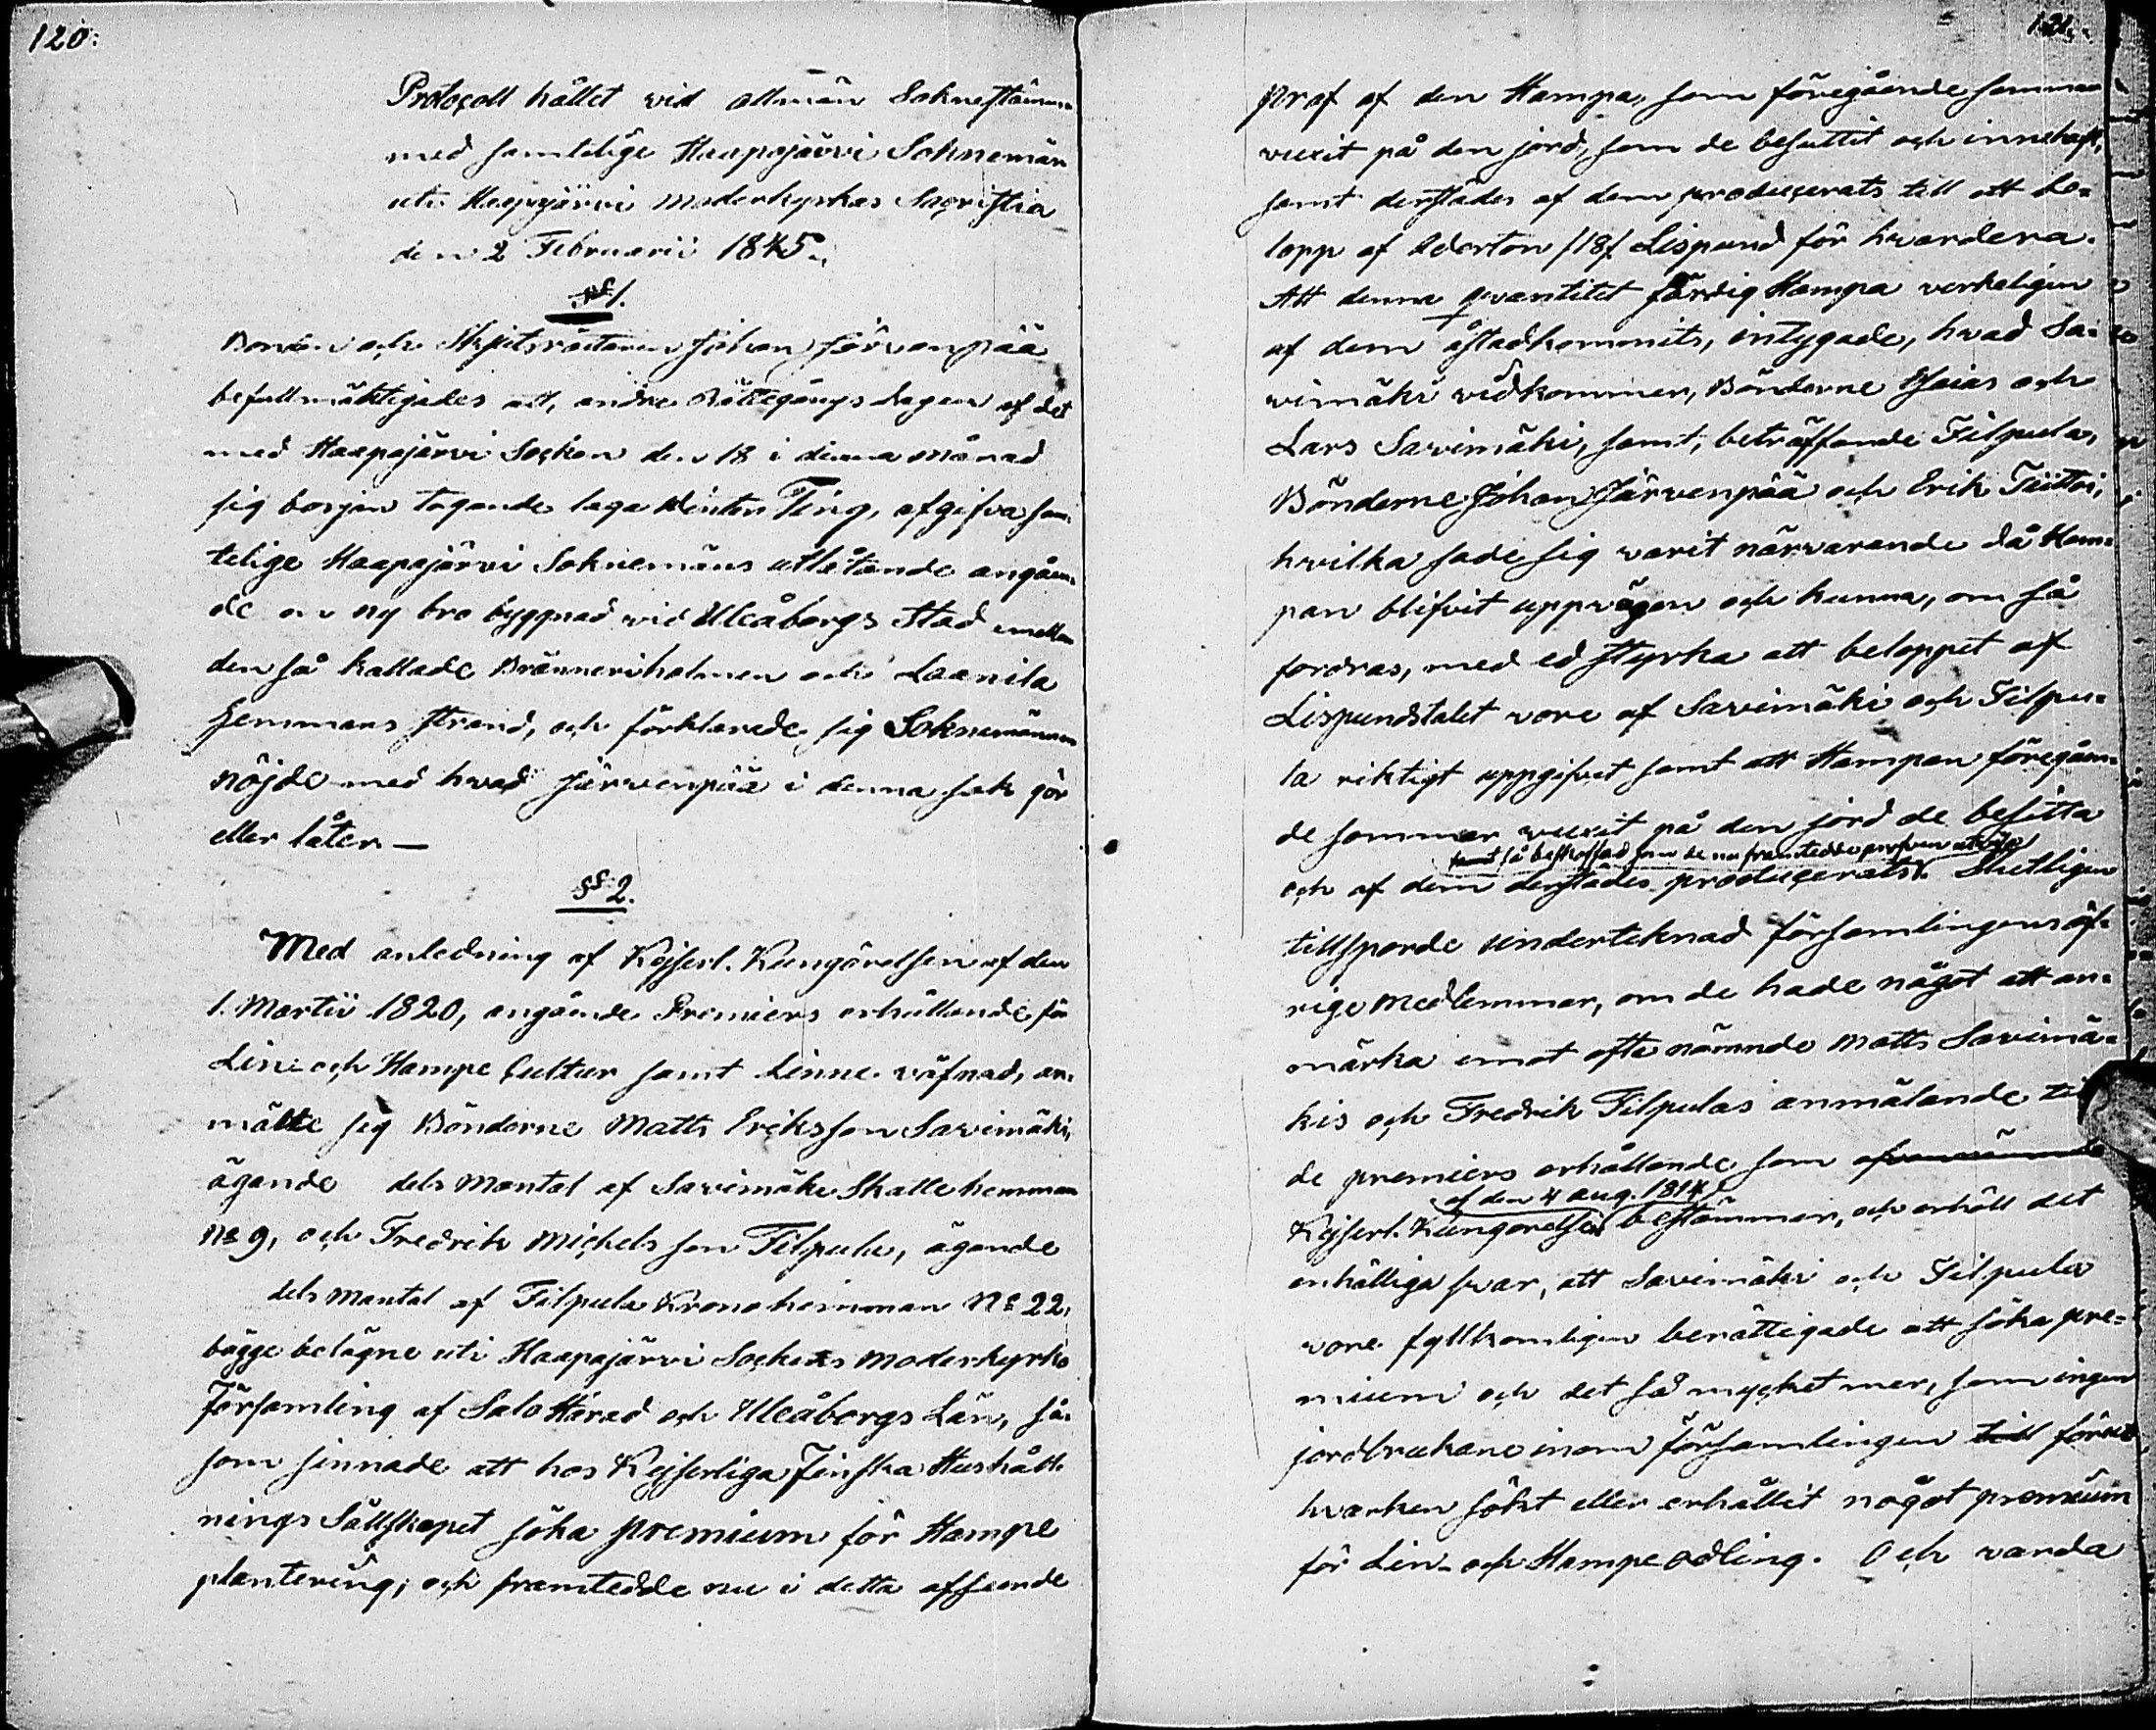 120:
Protocoll hållet vid allmän Sokneståmma
med samtelige Haapajärvi Soknemän
uti Haapajärvi moderkyrkas Sacristia
den 2 Februarii 1845.
§ 1.
Bonden och Skjutsrättaren Johan Järvenpää
befullmäktigades att, andra Rättegångs dagen af det
med Haapajärvi Socken den 18 i denna månad
sig början tagande laga Winter Ting, afgifva sam-
telige Haapajärvi Soknemäns utlåtande angåen-
de en ny bro byggnad vid Uleåborgs Stad emellan
den så kallade Bränneriholmen och Laanila
hemmans strand, och förklarade sig Soknemännen
nöjde med hvad Järvenpää i denna sak gör
eller låter —
§§ 2.
Med anledning af Kejserl. Kungörelsen af den
1. Martii 1820, angående Premiers erhållande för
Lin- och Hampe Cultur samt Linne väfnad, an-
mälte sig Bönderne Matts Eriksson Savimäki,
ägande dels mantal af Savimäki Skatte hemman
No 9, och Fredrik Michelsson Filpula, ägande
dels mantal af Filpula Kronohemman No 22,
bägge belägne uti Haapajärvi Sockens moderkyrko
Församling af Salo Härad och Uleåborgs Län, så-
som sinnade att hos Kejserliga Finska Hushåll-
nings Sällskapet söka premium för Hampe
plantering; och framtedde nu i detta afseende
121.
prof af den Hampa, som föregående sommar
vuxit på den jord, som de besuttit och innehaft,
samt derstädes af dem producerats till ett be-
lopp af Aderton /18/ Lispund för hvardera.
Att denna qvantitet färdig Hampa verkeligen
af dem åstadkommits, intygade, hvad Sa-
vimäki vidkommer, Bönderne Esaias och
Lars Savimäki, samt, beträffande Filpula,
Bönderne Johan Järvenpää och Erik Tiitto,
hvilka sade sig varit närvarande då Ham-
pan blifvit uppvägen och kunna, om så
fordras, med ed styrka att beloppet af
Lispundstalet vore af Savimäki och Filpu-
la riktigt uppgifvet samt att Hampan föregåen-
de sommar vuxit på den jord de besitta
samt så beskaffad som de nu framtedde profven utvisa
och af dem derstädes producerats. Slutligen
tillsporde underteknad församlingens öf-
rige medlemmar, om de hade något att an-
märka emot ofta nämnde Matts Savimä-
kis och Fredrik Filpulas anmälande till
de premiers erhållande som ofvannämnde
af den 4 aug. 1814
Kejserl. Kungörelser bestämmer, och erhöll det
enhälliga svar, att Savimäki och Filpula
vore fullkomligen berättigade att söka pre-
mium och det så mycket mer, som ingen
jordbrukare inom församlingen till förut
hvarken sökt eller erhållit något premium
för Lin- och Hampe odling. Och varda